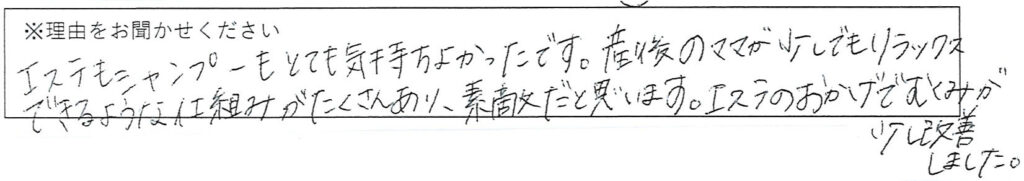 ※理由をお聞かせください
エステもシャンプーもとても気持ちよかったです。産後のママが少しでもリラックス
できるような仕組みがたくさんあり、素敵だと思います。エステのおかげでむくみが
少し改善
しました。